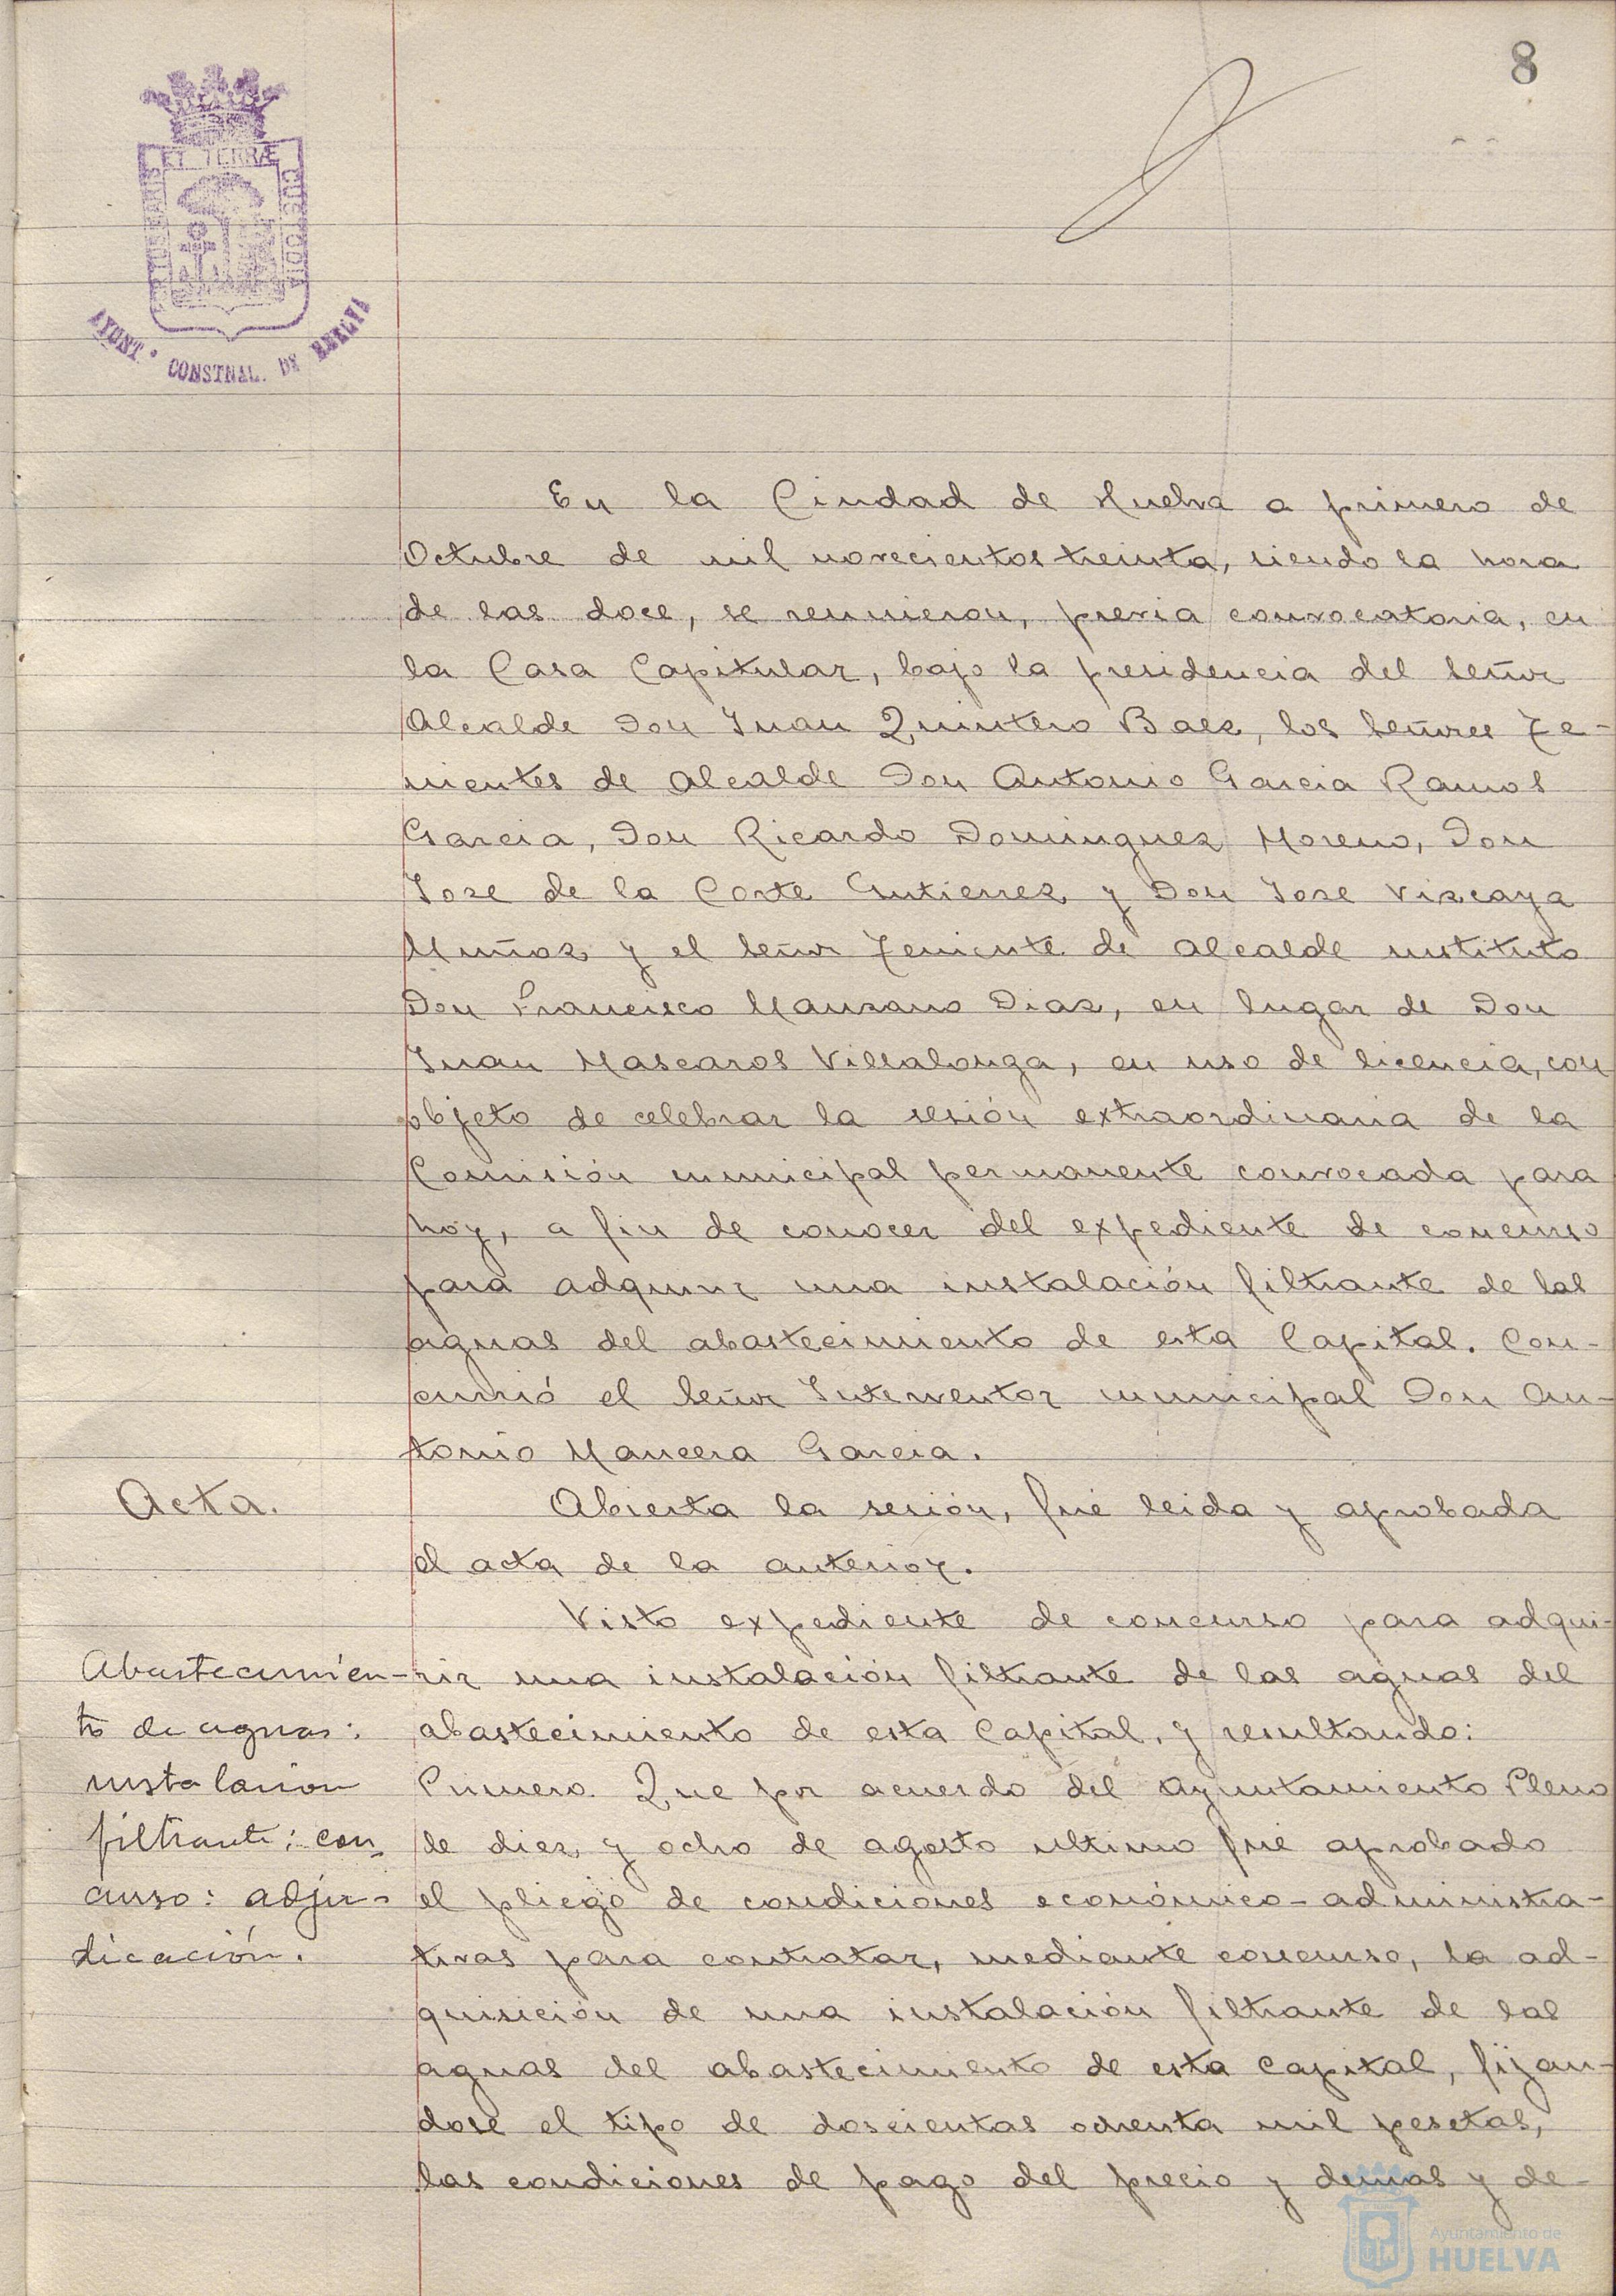 8
ET TERRÆ
PORTUS MARIS
CUSTODIA
AYUNT.º CONSTNAL. DE HUELVA
En la Ciudad de Huelva a primero de
Octubre de mil novecientos treinta, siendo la hora
de las doce, se reunieron, previa convocatoria, en
la Casa Capitular, bajo la presidencia del Señor
Alcalde Don Juan Quintero Baez, los Señores Te-
nientes de Alcalde Don Antonio Garcia Ramos
Garcia, Don Ricardo Dominguez Moreno, Don
Jose de la Corte Gutierrez y Don Jose Vizcaya
Muñoz y el Señor Teniente de Alcalde sustituto
Don Francisco Manzano Diaz, en lugar de Don
Juan Mascaros Villalonga, en uso de licencia, con
objeto de celebrar la sesión extraordinaria de la
Comisión municipal permanente convocada para
hoy, a fin de conocer del expediente de concurso
para adquirir una instalación filtrante de las
aguas del abastecimiento de esta Capital. Con-
currió el Señor Interventor municipal Don An-
tonio Mancera Garcia.
Acta.
Abierta la sesión, fué leida y aprobada
el acta de la anterior.
Abastecimien-
to de aguas:
instalacion
filtrante: con-
curso: adju-
dicación.
Visto expediente de concurso para adqui-
rir una instalación filtrante de las aguas del
abastecimiento de esta Capital, y resultando:
Primero. Que por acuerdo del Ayuntamiento Pleno
de diez y ocho de agosto ultimo fué aprobado
el pliego de condiciones económico-administra-
tivas para contratar, mediante concurso, la ad-
quisición de una instalación filtrante de las
aguas del abastecimiento de esta Capital, fijan-
dose el tipo de doscientas ochenta mil pesetas,
las condiciones de pago del precio y demas y de-
Ayuntamiento de
HUELVA